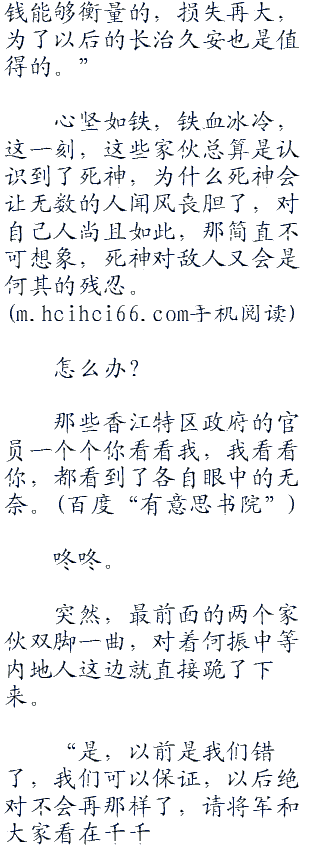 钱能够衡量的，损失再大，
为了以后的长治久安也是值
得的。”
心坚如铁，铁血冰冷，
这一刻，这些家伙总算是认
识到了死神，为什么死神会
让无数的人闻风丧胆了，对
自己人尚且如此，那简直不
可想象，死神对敌人又会是
何其的残忍。
(m.hcihci66.com手机阅读)
怎么办？
那些香江特区政府的官
员一个个你看看我，我看看
你，都看到了各自眼中的无
奈。(百度“有意思书院”)
咚咚。
突然，最前面的两个家
伙双脚一曲，对着何振中等
内地人这边就直接跪了下
来。
“是，以前是我们错
了，我们可以保证，以后绝
对不会再那样了，请将军和
大家看在千千